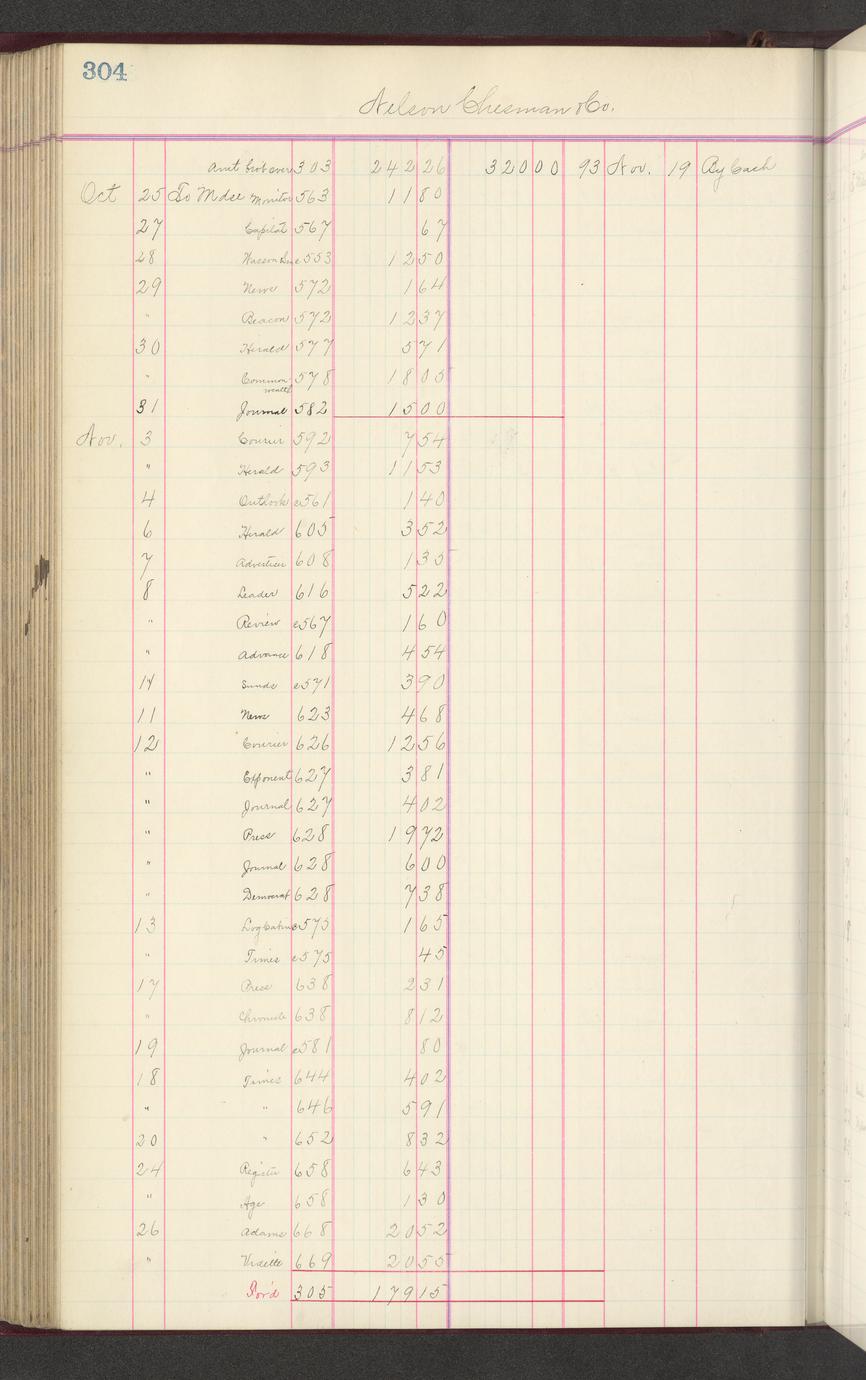 304
Nelson Chesman & Co.
Amt brot over 303 242 26 320 00 93 Nov. 19 By Cash
Oct 25 To Mdse Monitor 563 11 80
27 Capital 567 67
28 e553 12 50
29 News 572 1 64
" Beacon 572 12 37
30 Herald 577 5 71
" Common wealth 578 18 05
31 Journal 582 15 00
Nov. 3 Courier 592 7 54
" Herald 593 11 53
4 Outlook e561 1 40
6 Herald 605 3 52
7 Advertiser 608 1 35
8 Leader 616 5 22
" Review e567 1 60
" Advance 618 4 54
Sunds e571 3 90
11 News 623 4 68
12 Courier 626 12 56
" Exponent 627 3 81
" Journal 627 4 02
" Press 628 19 72
" Journal 628 6 00
" Democrat 628 7 38
13 Log Cabin e575 1 65
" Times e575 45
17 Press 638 2 31
" Chronicle 638 8 12
19 Journal e581 80
18 Times 644 4 02
" " 646 5 91
20 " 652 8 32
24 Register 658 6 43
" Age 658 1 30
26 Adams 668 20 52
" Vidette 669 20 55
For'd 305 179 15